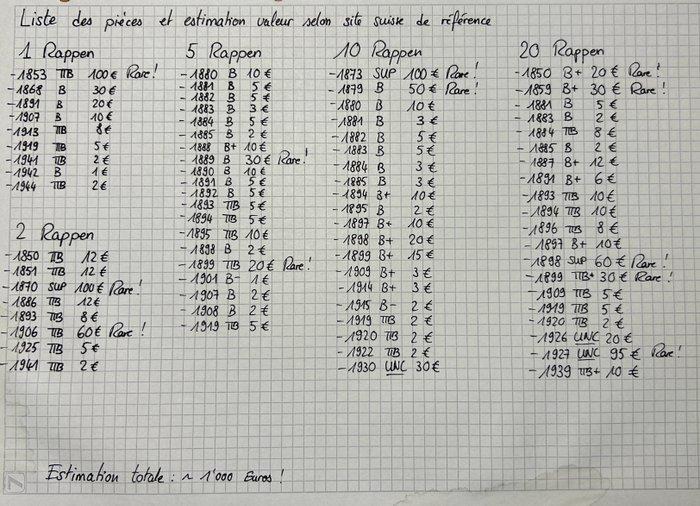 Liste des pièces et estimation valeur selon site suisse de référence
1 Rappen
-1853 TTB 100 € Rare !
-1868 B 30 €
-1891 B 20 €
-1907 B 10 €
-1913 TTB 8 €
-1919 TTB 5 €
-1941 TTB 2 €
-1942 B 1 €
-1944 TTB 2 €
2 Rappen
-1850 TTB 12 €
-1851 TTB 12 €
-1870 SUP 100 € Rare !
-1886 TTB 12 €
-1893 TTB 8 €
-1906 TTB 60 € Rare !
-1925 TTB 5 €
-1941 TTB 2 €
5 Rappen
-1880 B 10 €
-1881 B 5 €
-1882 B 5 €
-1883 B 3 €
-1884 B 5 €
-1885 B 2 €
-1888 B+ 10 €
-1889 B 30 € Rare !
-1890 B 10 €
-1891 B 5 €
-1892 B 5 €
-1893 TTB 5 €
-1894 TTB 5 €
-1895 TTB 10 €
-1898 B 2 €
-1899 TTB 20 € Rare !
-1901 B- 1 €
-1907 B 2 €
-1908 B 2 €
-1919 TTB 5 €
10 Rappen
-1873 SUP 100 € Rare !
-1879 B 50 € Rare !
-1880 B 10 €
-1881 B 3 €
-1882 B 5 €
-1883 B 5 €
-1884 B 3 €
-1885 B 3 €
-1894 B+ 10 €
-1895 B 2 €
-1897 B+ 10 €
-1898 B+ 20 €
-1899 B+ 15 €
-1909 B+ 3 €
-1914 B+ 3 €
-1915 B- 2 €
-1919 TTB 2 €
-1920 TTB 2 €
-1922 TTB 2 €
-1930 UNC 30 €
20 Rappen
-1850 B+ 20 € Rare !
-1859 B+ 30 € Rare !
-1881 B 5 €
-1883 B 2 €
-1884 TTB 8 €
-1885 B 2 €
-1887 B+ 12 €
-1891 B+ 6 €
-1893 TTB 10 €
-1894 TTB 10 €
-1896 TTB 8 €
-1897 B+ 10 €
-1898 SUP 60 € Rare !
-1899 TTB+ 30 € Rare !
-1909 TTB 5 €
-1919 TTB 5 €
-1920 TTB 2 €
-1926 UNC 20 €
-1927 UNC 95 € Rare !
-1939 TTB+ 10 €
Estimation totale : ~ 1'000 Euros !